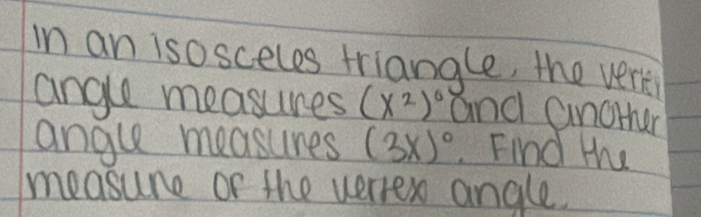 In an isosceles triangle, the vertex
angle measures (x²)° and another
angle measures (3x)°. Find the
measure of the vertex angle.